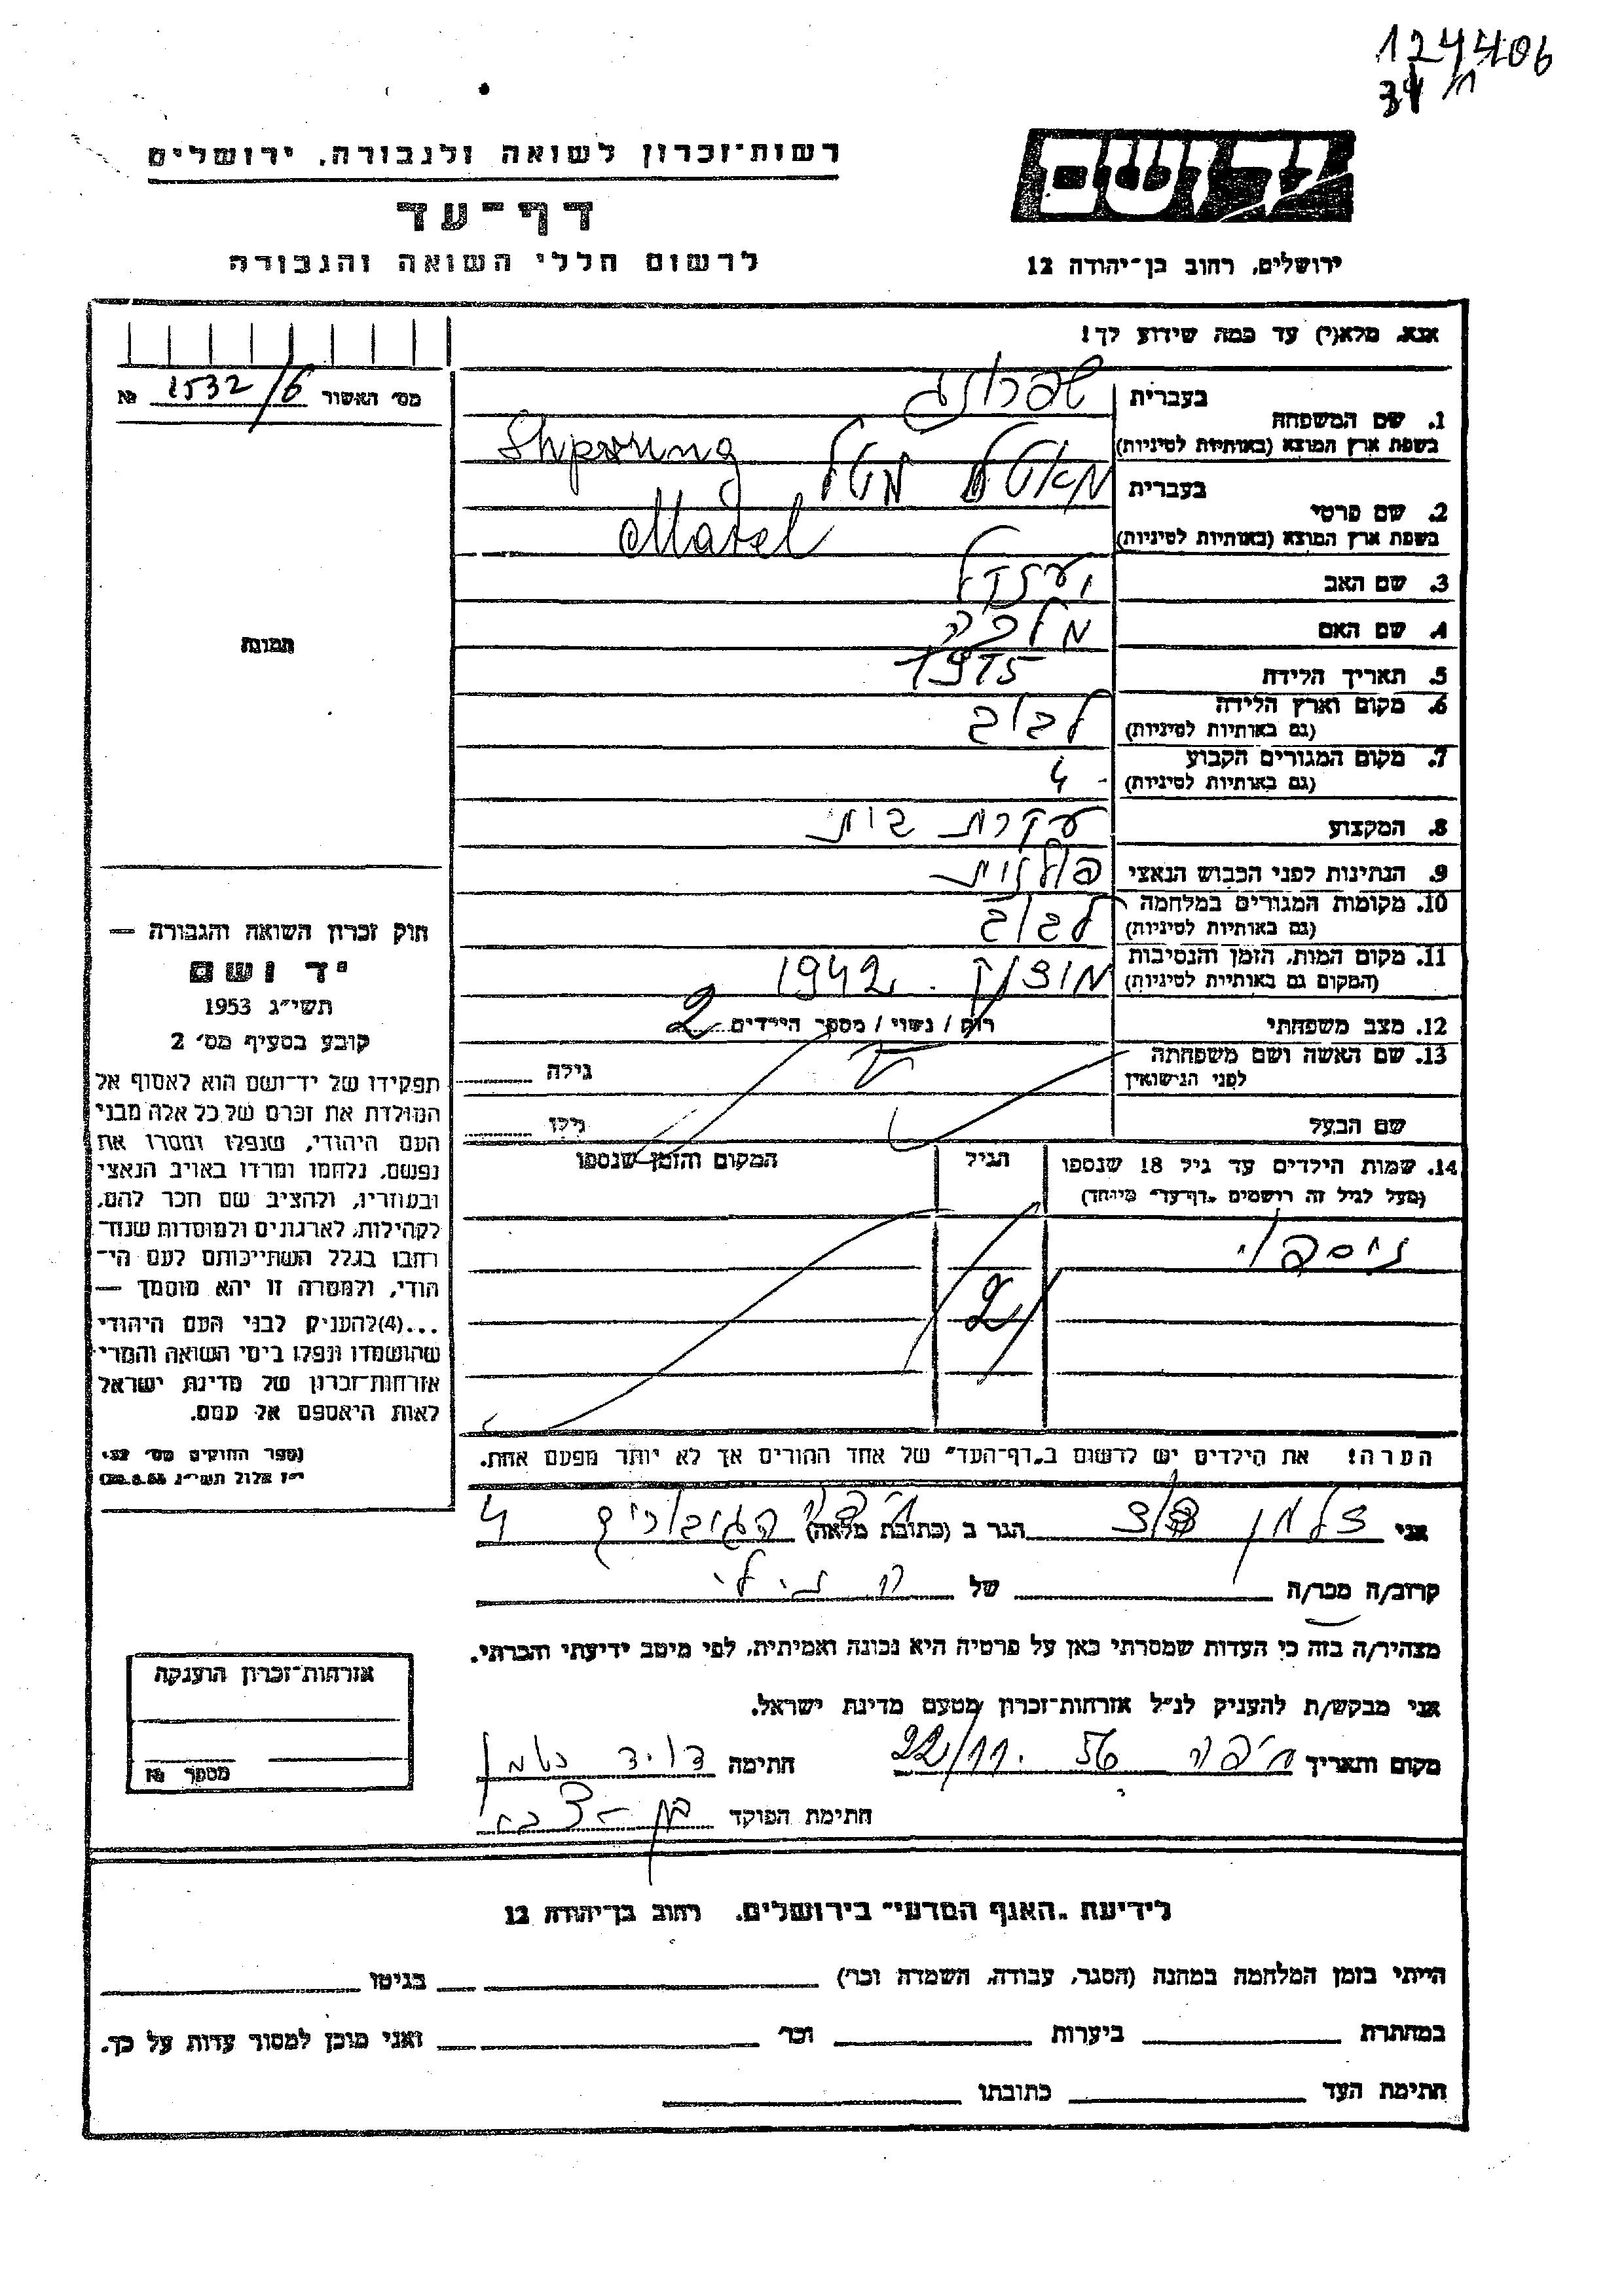 124406
34
רשות־זכרון לשואה ולגבורה, ירושלים
יד ושם
דף־עד
לרשום חללי השואה והגבורה
ירושלים, רחוב בן־יהודה 12
אנא, מלא(י) עד כמה שידוע לך!
מס׳ האשור 1532/6 №
1. שם המשפחה
בעברית
בשפת ארץ המוצא (באותיות לטיניות) Shperung
2. שם פרטי
בעברית מטל
בשפת ארץ המוצא (באותיות לטיניות) Matel
3. שם האב
4. שם האם מלכה
5. תאריך הלידה 1915
6. מקום וארץ הלידה לבוב
(גם באותיות לטיניות)
7. מקום המגורים הקבוע
(גם באותיות לטיניות)
8. המקצוע עקרת בית
9. הנתינות לפני הכבוש הנאצי פולנית
10. מקומות המגורים במלחמה לבוב
(גם באותיות לטיניות)
11. מקום המות, הזמן והנסיבות 1942
(המקום גם באותיות לטיניות)
12. מצב משפחתי רוק / נשוי / מספר הילדים 2
13. שם האשה ושם משפחתה גילה
לפני הנישואין
שם הבעל גילו
14. שמות הילדים עד גיל 18 שנספו הגיל המקום והזמן שנספו
(מעל לגיל זה רושמים „דף־עד״ מיוחד)
ניספו
2
הערה! את הילדים יש לרשום ב„דף־העד״ של אחד ההורים אך לא יותר מפעם אחת.
תמונה
חוק זכרון השואה והגבורה —
יד ושם
תשי״ג 1953
קובע בסעיף מס׳ 2
תפקידו של יד־ושם הוא לאסוף אל
המולדת את זכרם של כל אלה מבני
העם היהודי, שנפלו ומסרו את
נפשם, נלחמו ומרדו באויב הנאצי
ובעוזריו, ולהציב שם וזכר להם,
לקהילות, לארגונים ולמוסדות שנח־
רבו בגלל השתייכותם לעם הי־
הודי, ולמטרה זו יהא מוסמך —
...(4)להעניק לבני העם היהודי
שהושמדו ונפלו בימי השואה והמרי
אזרחות־זכרון של מדינת ישראל
לאות היאספם אל עמם.
(ספר החוקים מס׳ 132,
י״ז אלול תשי״ג 28.8.53)
אני זלמן הגר ב (כתובת מלאה) הגיבורים 4
קרוב/ה מכר/ה של
מצהיר/ה בזה כי העדות שמסרתי כאן על פרטיה היא נכונה ואמיתית, לפי מיטב ידיעתי והכרתי.
אני מבקש/ת להעניק לנ״ל אזרחות־זכרון מטעם מדינת ישראל.
מקום ותאריך חיפה 22/11. 56 חתימה דויד
חתימת הפוקד
אזרחות־זכרון הוענקה
מספר №
לידיעת „האגף המדעי״ בירושלים, רחוב בן־יהודה 12
הייתי בזמן המלחמה במחנה (הסגר, עבודה, השמדה וכר׳) בגיטו
במחתרת ביערות וכר׳ ואני מוכן למסור עדות על כך.
חתימת העד כתובתו